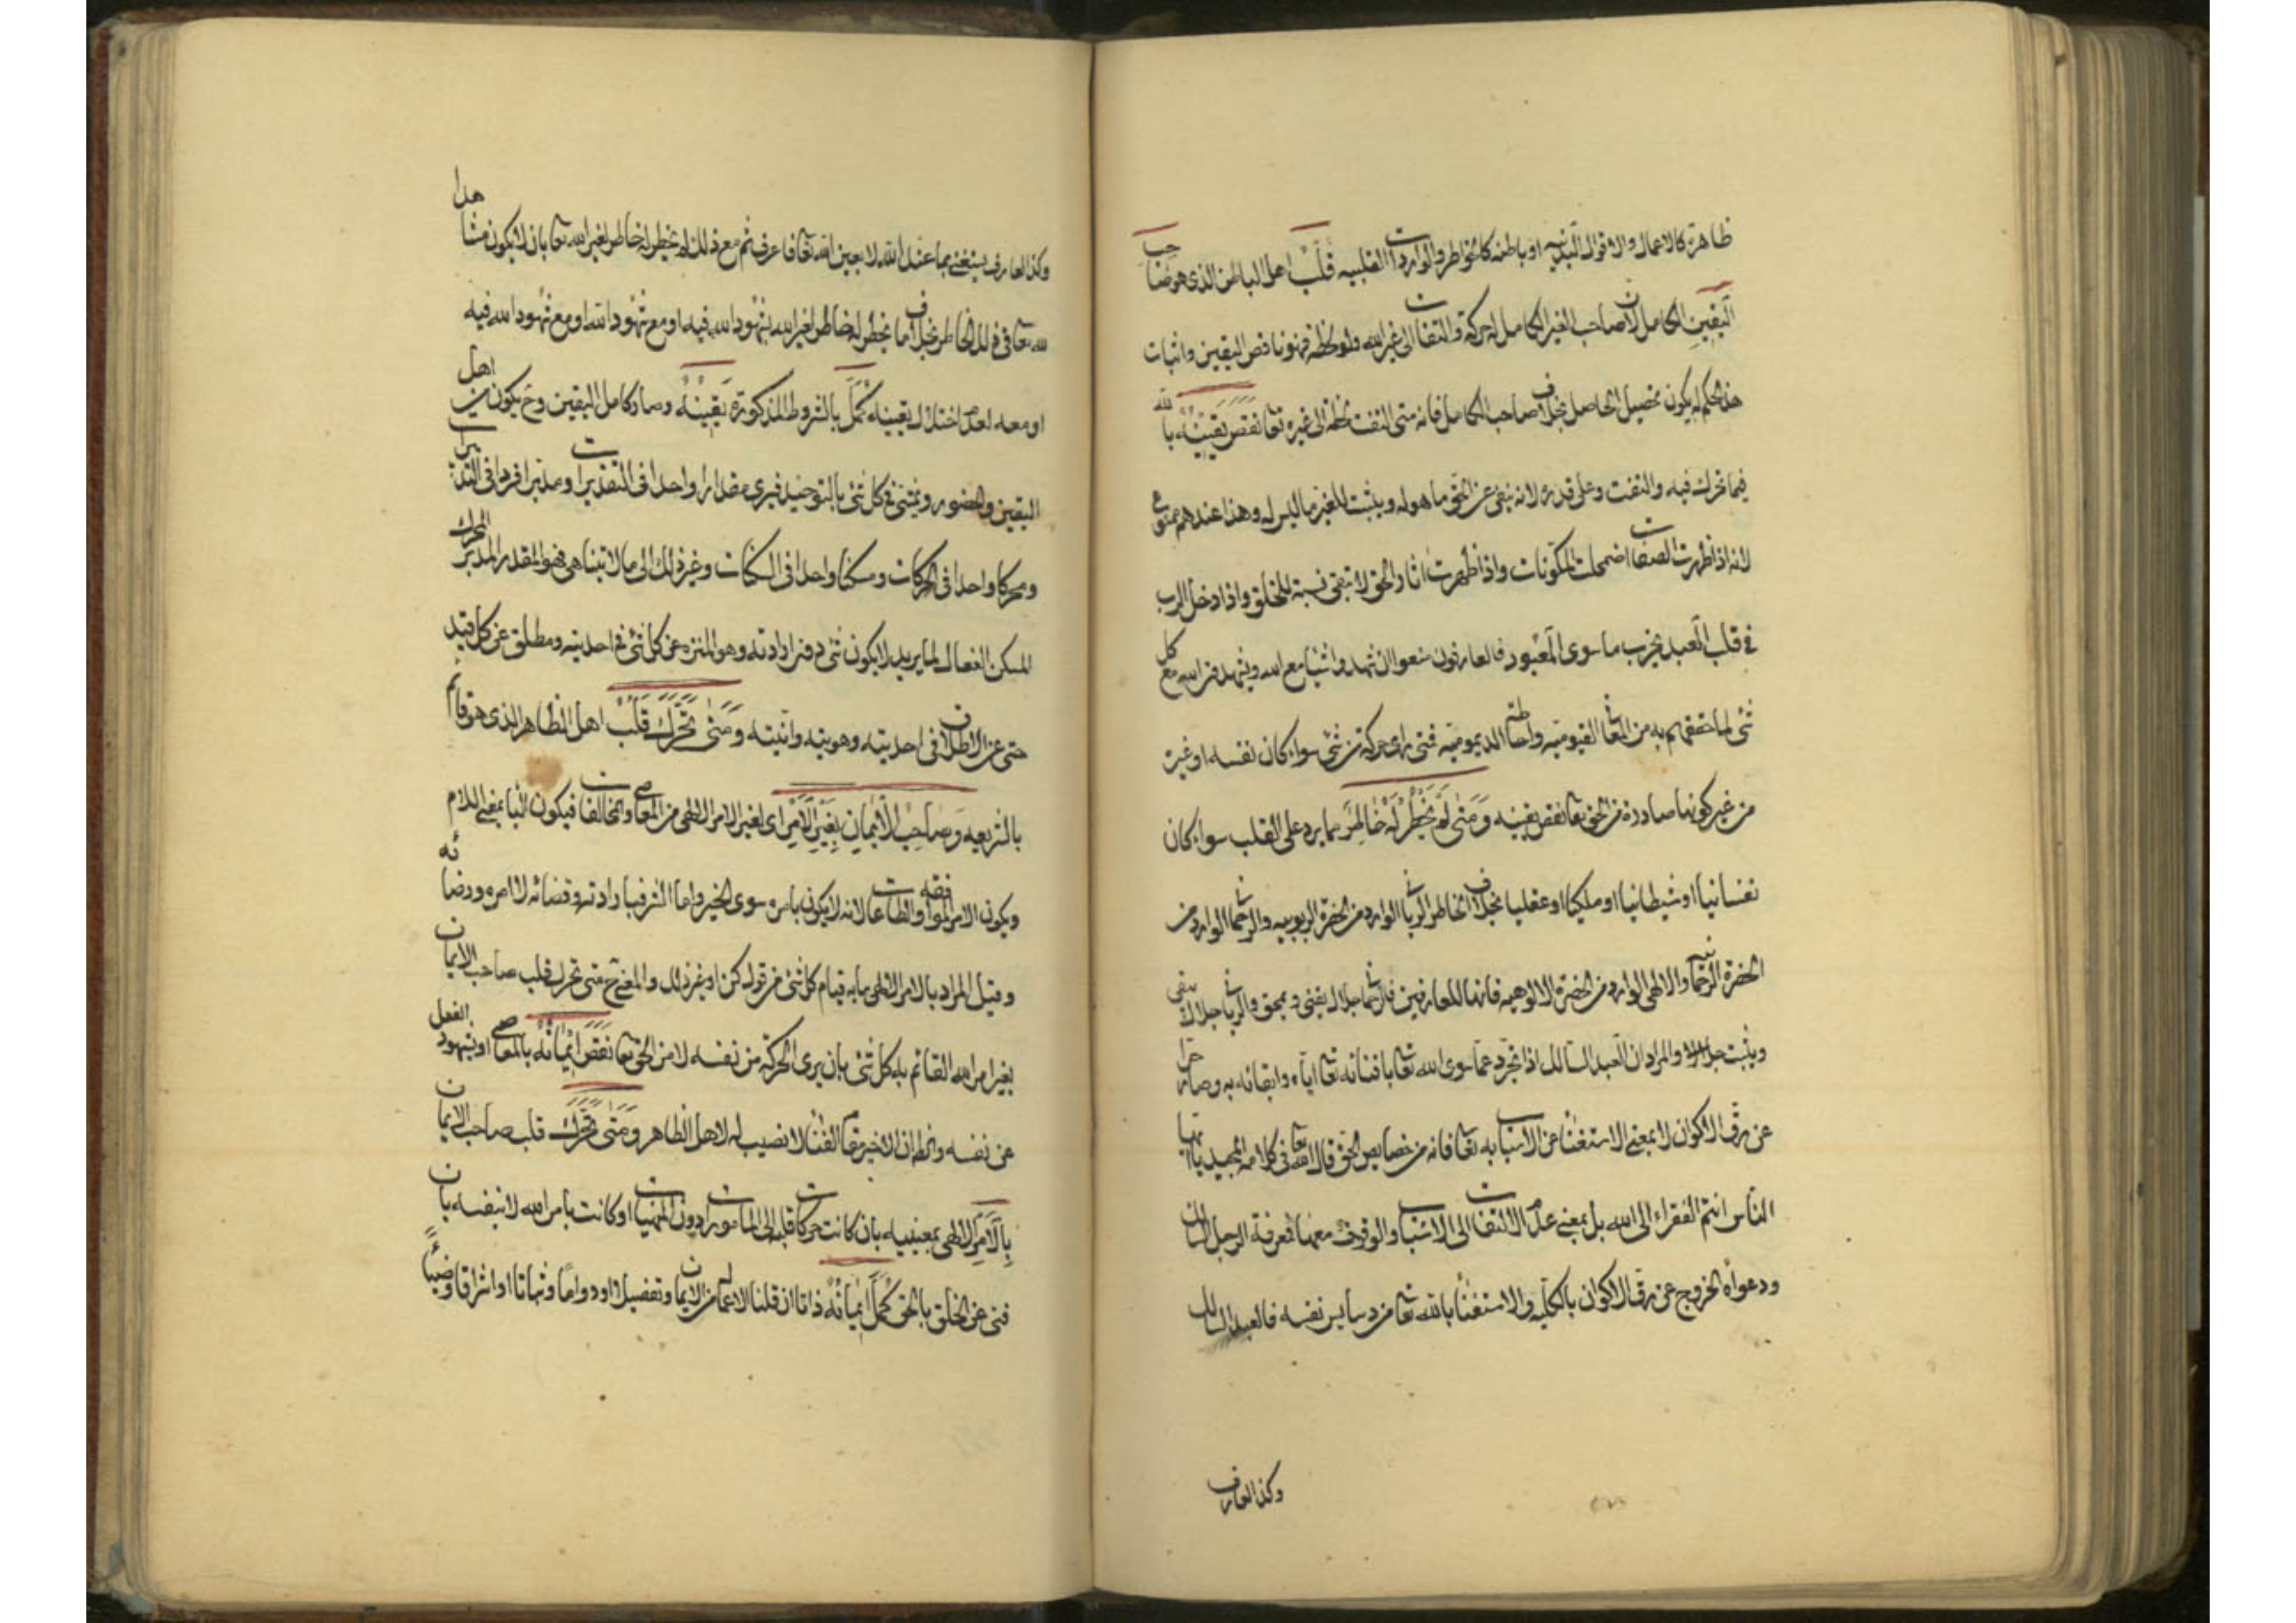 ظاهرة كالاعمال والاقوال البدنيه او باطنه كالخواطر والواردات القلبيه قلب اهل الباطن الذى هو صاحب
اليقين الكامل لان صاحب الغير الكامل له حركة والتفات الى غير الله ولو لحظة فهو ناقص اليقين واثبات
هذا الحكم له يكون تحصيل الحاصل بخلاف صاحب الكامل فانه متى التفت لحظة الى غيره تعا نقص يقينه بالله
فيما تحرك فيه والتفت وعلى قدره لانه نفى عن الحق ما هو له ويثبت للغير ما ليس له وهذا عندهم ممنوع
لانه اذا ظهرت الصفات اضمحلت المكونات واذا ظهرت اثار الحق لا تبقى نسبة للخلق واذا دخل الرب
فى قلب العبد يخرب ما سوى المعبود فالعارفون منعوا ان شهدوا شيأ مع الله ويشهدون الله مع كل
شئ لما حققهم به من المعانى القيوميه واحاطة الديموميه فمتى راى حركة من شئ سواء كان نفسه او غيره
من غير كونها صادرة من الحق تعا نقص يقينه ومتى لم يخطر له خاطر مما يرد على القلب سواء كان
نفسانيا او شيطانيا او ملكيا او عقليا بخلاف الخاطر الربانى الوارد من الحضرة الربوبيه والرحمانى الوارد من
الحضرة الرحمانيه والالهى الوارد من الحضرة الالوهيه فانها للعارفين فالرحمانى جلال يفنى و يمحق والربانى جلال يبقى
ويثبت والمراد ان العبد السالك اذا تجرد عما سوى الله تعالى بافنائه تعالى اياه وابقائه به وصار حرا
عن رق الاكوان لا بمعنى الاستغناء عن الاسباب به تعالى فانه من خصايص الحق قال الله تعا فى كلامه المجيد يا ايها
الناس انتم الفقراء الى الله بل بمعنى عدم الالتفات الى الاسباب والوقوف معها فمعرفة الرجل السالك
ودعواه الخروج عن رق الاكوان بالكليه والاستغناء بالله تعالى من دسايس نفسه فالعبد السالك
وكذا العارف
وكذا العارف يستغنى بما عند الله لا بعين الله تعا فاعرف ثم مع ذلك لم يخطر له خاطر لغير الله تعا بان لا يكون مشاهدا
لله تعا فى ذلك الخاطر بخلاف ما يخطر له خاطر لغير الله بشهود الله فيه او مع شهود الله او مع شهود الله فيه
او معه لعدم اختلال يقينه كمل بالشروط المذكورة يقينه وصار كامل اليقين وح يكون من اهل
اليقين والحضور ويمشى فى كل شئ بالتوحيد فيرى مقدارا واحدا فى التقديرات ومدبرا فردا فى التدبيرات
ومحركا واحدا فى الحركات ومسكنا واحدا فى السكنات وغير ذلك الى ما لا يتناهى فهو المقدر المدبر المحرك
المسكن الفعال لما يريد لا يكون شئ دون ارادته وهو المنزه عن كل شئ فى احديته ومطلق عن كل قيد
حتى عن الاطلاق فى احديته وهويته وانيته ومتى تحرك قلب اهل الظاهر الذى هو قائم
بالشريعه وصاحب الايمان بغير الامر اى لغير الامر الالهى من المعاصى والمخالفات فيكون البا بمعنى اللام
ويكون الامر الموافقه والطاعات لانه لا يكون بامره سوى الخير واما الشر فبارادته وقضائه لا امره ورضائه
وقيل المراد بالامر الالهى ما به قيام كل شئ من قوله كن او غير ذلك والمعنى ح متى تحرك قلب صاحب الايمان
بغير امر الله القائم به كل شئ بان يرى الحركة من نفسه لا من الحق تعا نقص ايمانه بالمعاصى او بشهود الفعل
عن نفسه والظان الاخير مقام الفناء لا نصيب له لاهل الظاهر ومتى تحرك قلب صاحب الايمان
بالامر الالهى بمعنييه بان كانت حركات قلبه الى المامورات دون المنهيات او كانت بامر الله لا بنفسه بان
فنى عن الخلق بالحق كمل ايمانه ذاتا ان قلنا الاعمال من الايمان وتفصيلا او دواما وثباتا او اشراقا وضياءً